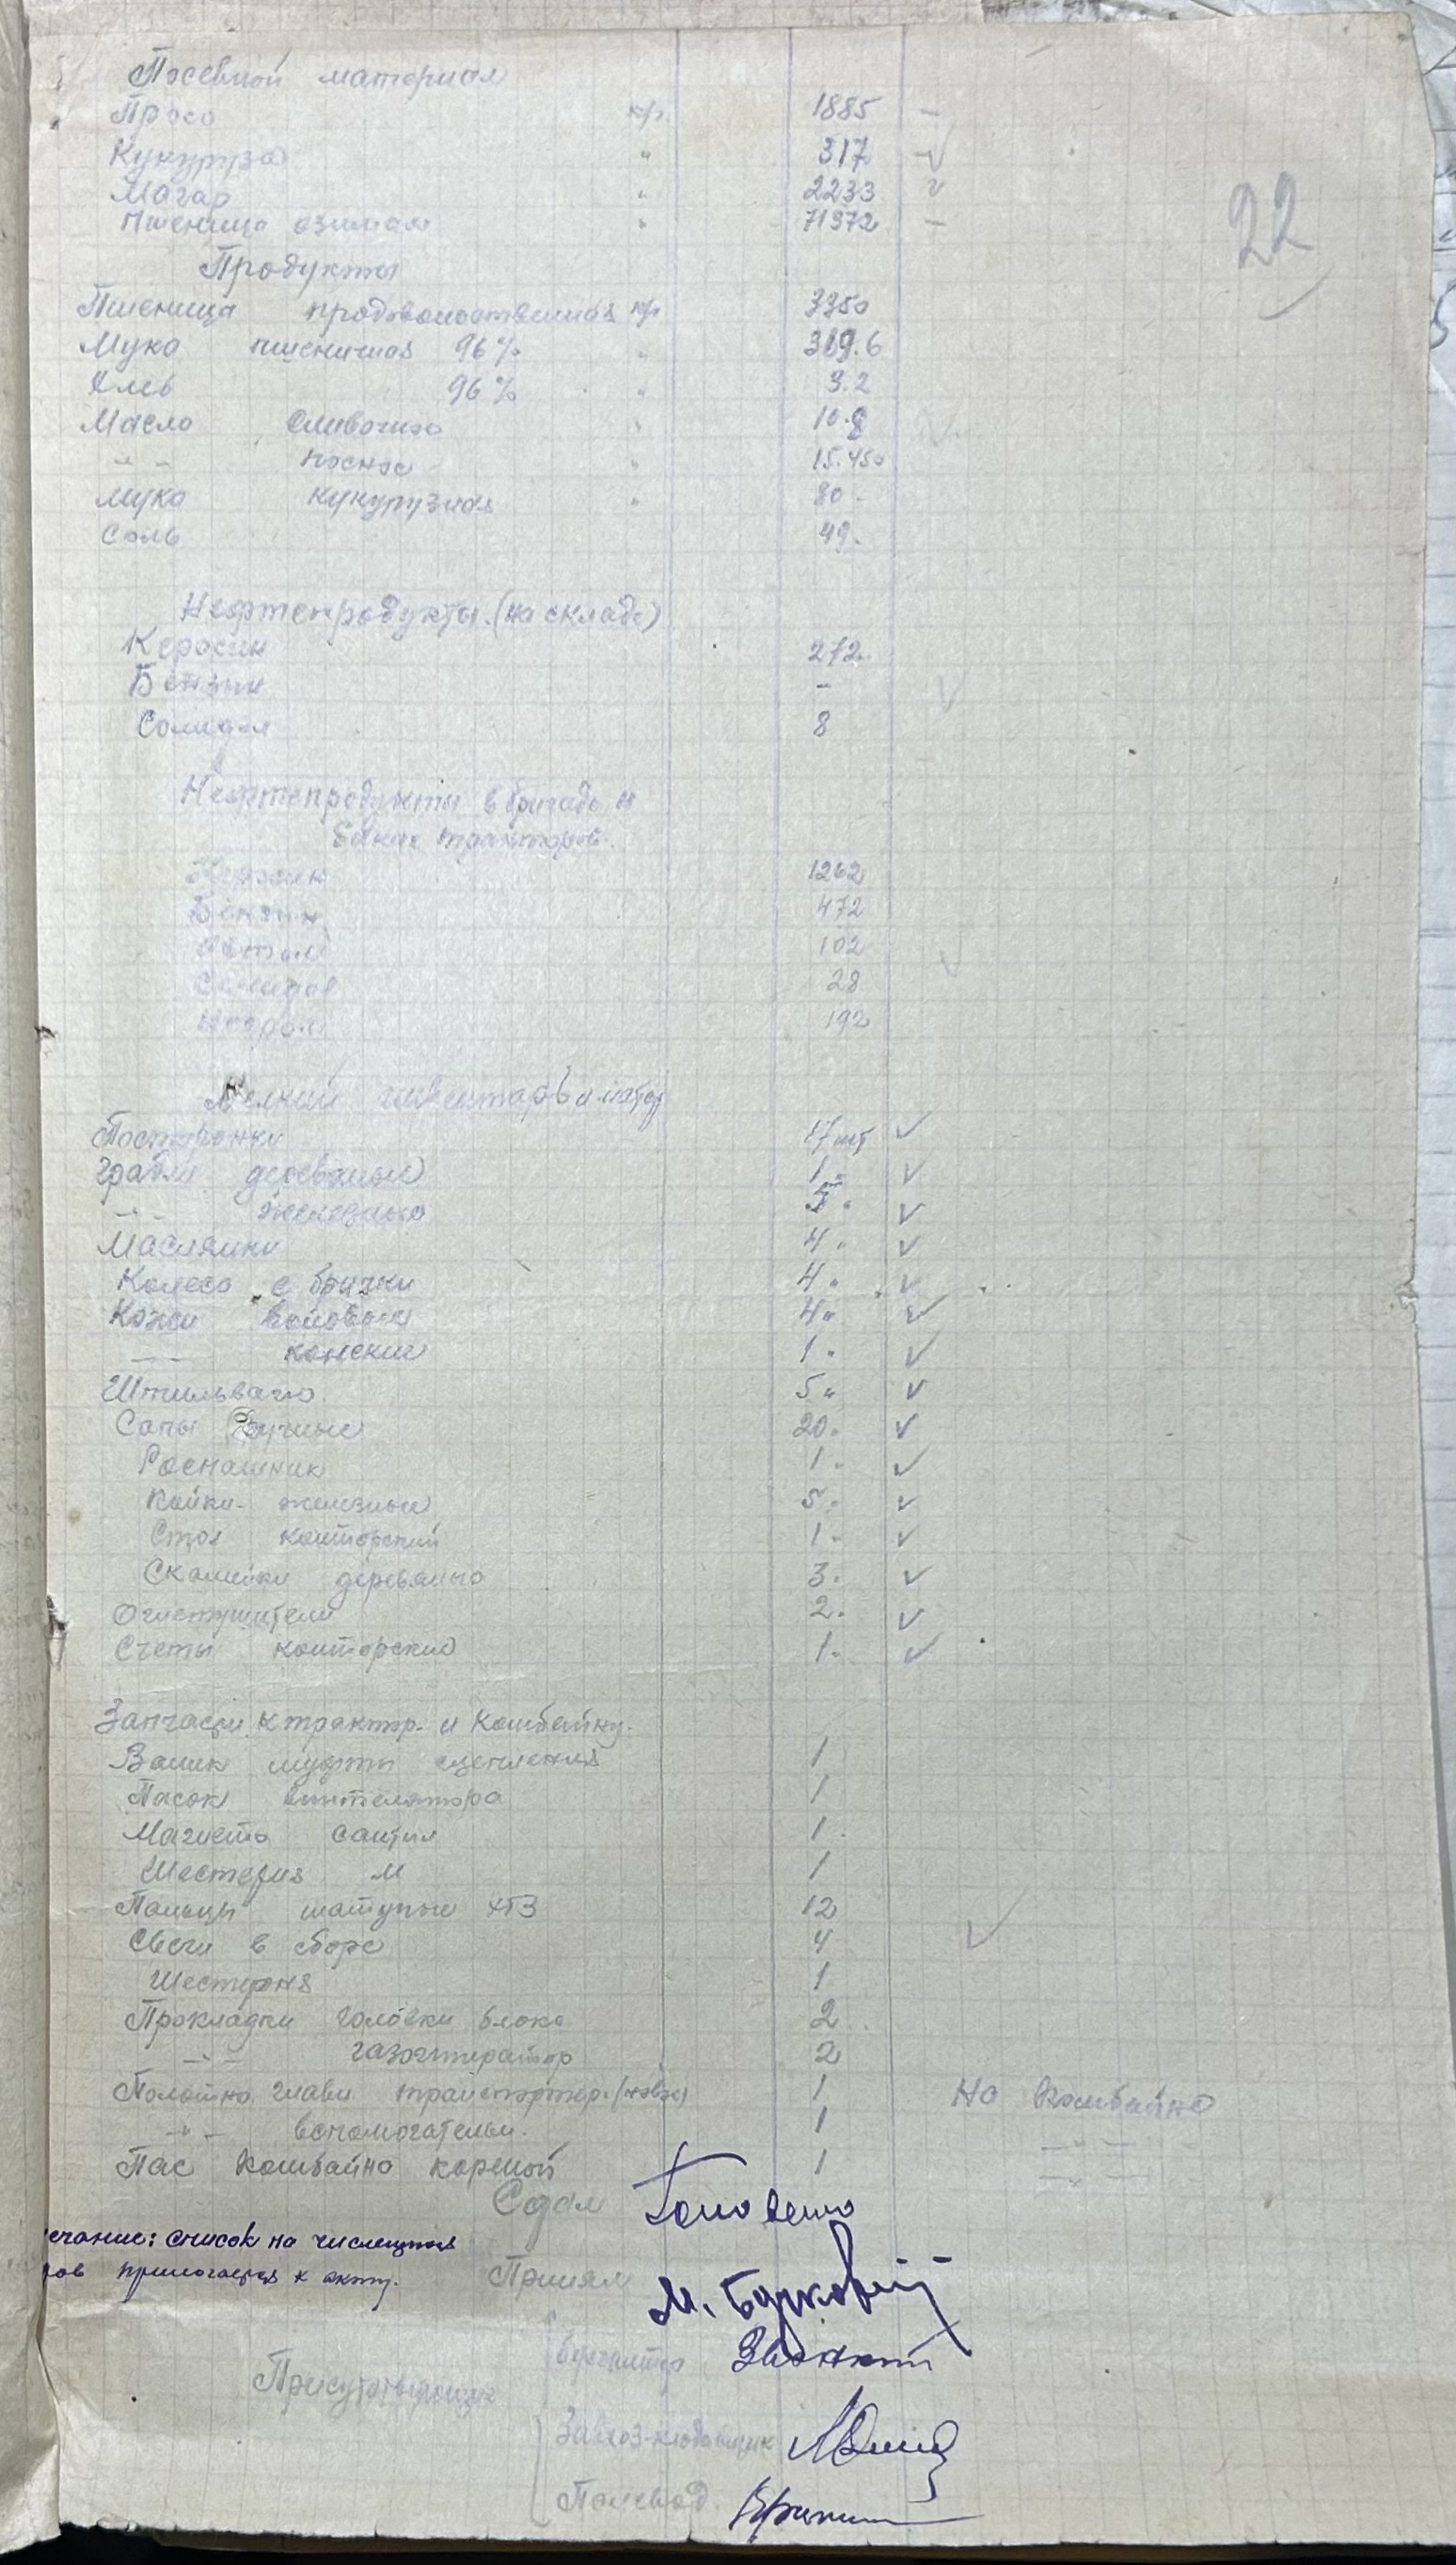 Посевной материал
Просо кг. 1885 –
Кукуруза " 317 – ✓
Магар " 2233 ✓
Пшеница озимая " 71972 –
22
Продукты
Пшеница продовольственная кг 3350
Мука пшеничная 96% " 319.6
Хлеб 96% " 3.2
Масло сливочное " 10.8
–"– постное " 15.450
Мука кукурузная " 80 -
Соль 49.
Нефтепродукты (на складе)
Керосин 272
Бензин –
Солидол 8
Нефтепродукты в бригаде и
баках тракторов.
Керосин 1262
Бензин 472
Автол 102
Солидол 28
Нигрол 192
Мелкий инвентарь и матер
Посторонки 17 шт ✓
Грабли деревяные 1 " ✓
–"– железные 5 " ✓
Маслянки 4 " ✓
Колеса с брички 4 " ✓
Кожи воловые 4 " ✓
–"– конские 1 " ✓
Штильваго. 5 " ✓
Сапы ручные 20 " ✓
1 " ✓
Койки железные 5 " ✓
Стол конторский 1 " ✓
Скамейки деревяные 3 " ✓
Огнетушители 2 " ✓
Счеты конторские 1 " ✓
Запчасти к трактор. и Комбайну.
Валик муфты сцепления 1
Пасок вентелятора 1
Магнето 1
Шестерня М 1
Пальцы шатуные ХТЗ 12
Свечи в сборе 4 ✓
Шестерня 1
Прокладки головки блока 2
–"– газогенератор 2
Полотно главн. транспортер. 1 На комбайне
–"– вспомогательн. 1 –"–
Пас комбайна кореной 1 –"–
Сдал
ечание: список на числящихся
ров прилогается к акту.
Принял М.
Присутствующие
бухгалтер
Завхоз-кладовщик
Полевод